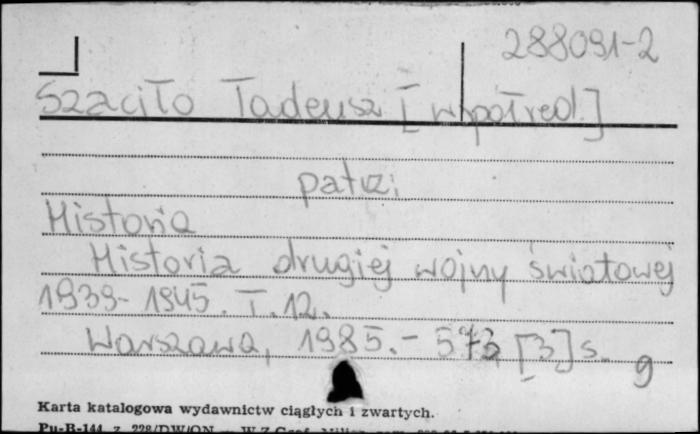 288091-2
Szaciło Tadeusz [współred.]
patrz:
Historia
Historia drugiej wojny światowej
1939-1945. T. 12.
Warszawa, 1985.- 573, [3] s.
g
Karta katalogowa wydawnictw ciągłych i zwartych.
Pu-B-144 z. 228/DW/ON — W.Z.Graf.